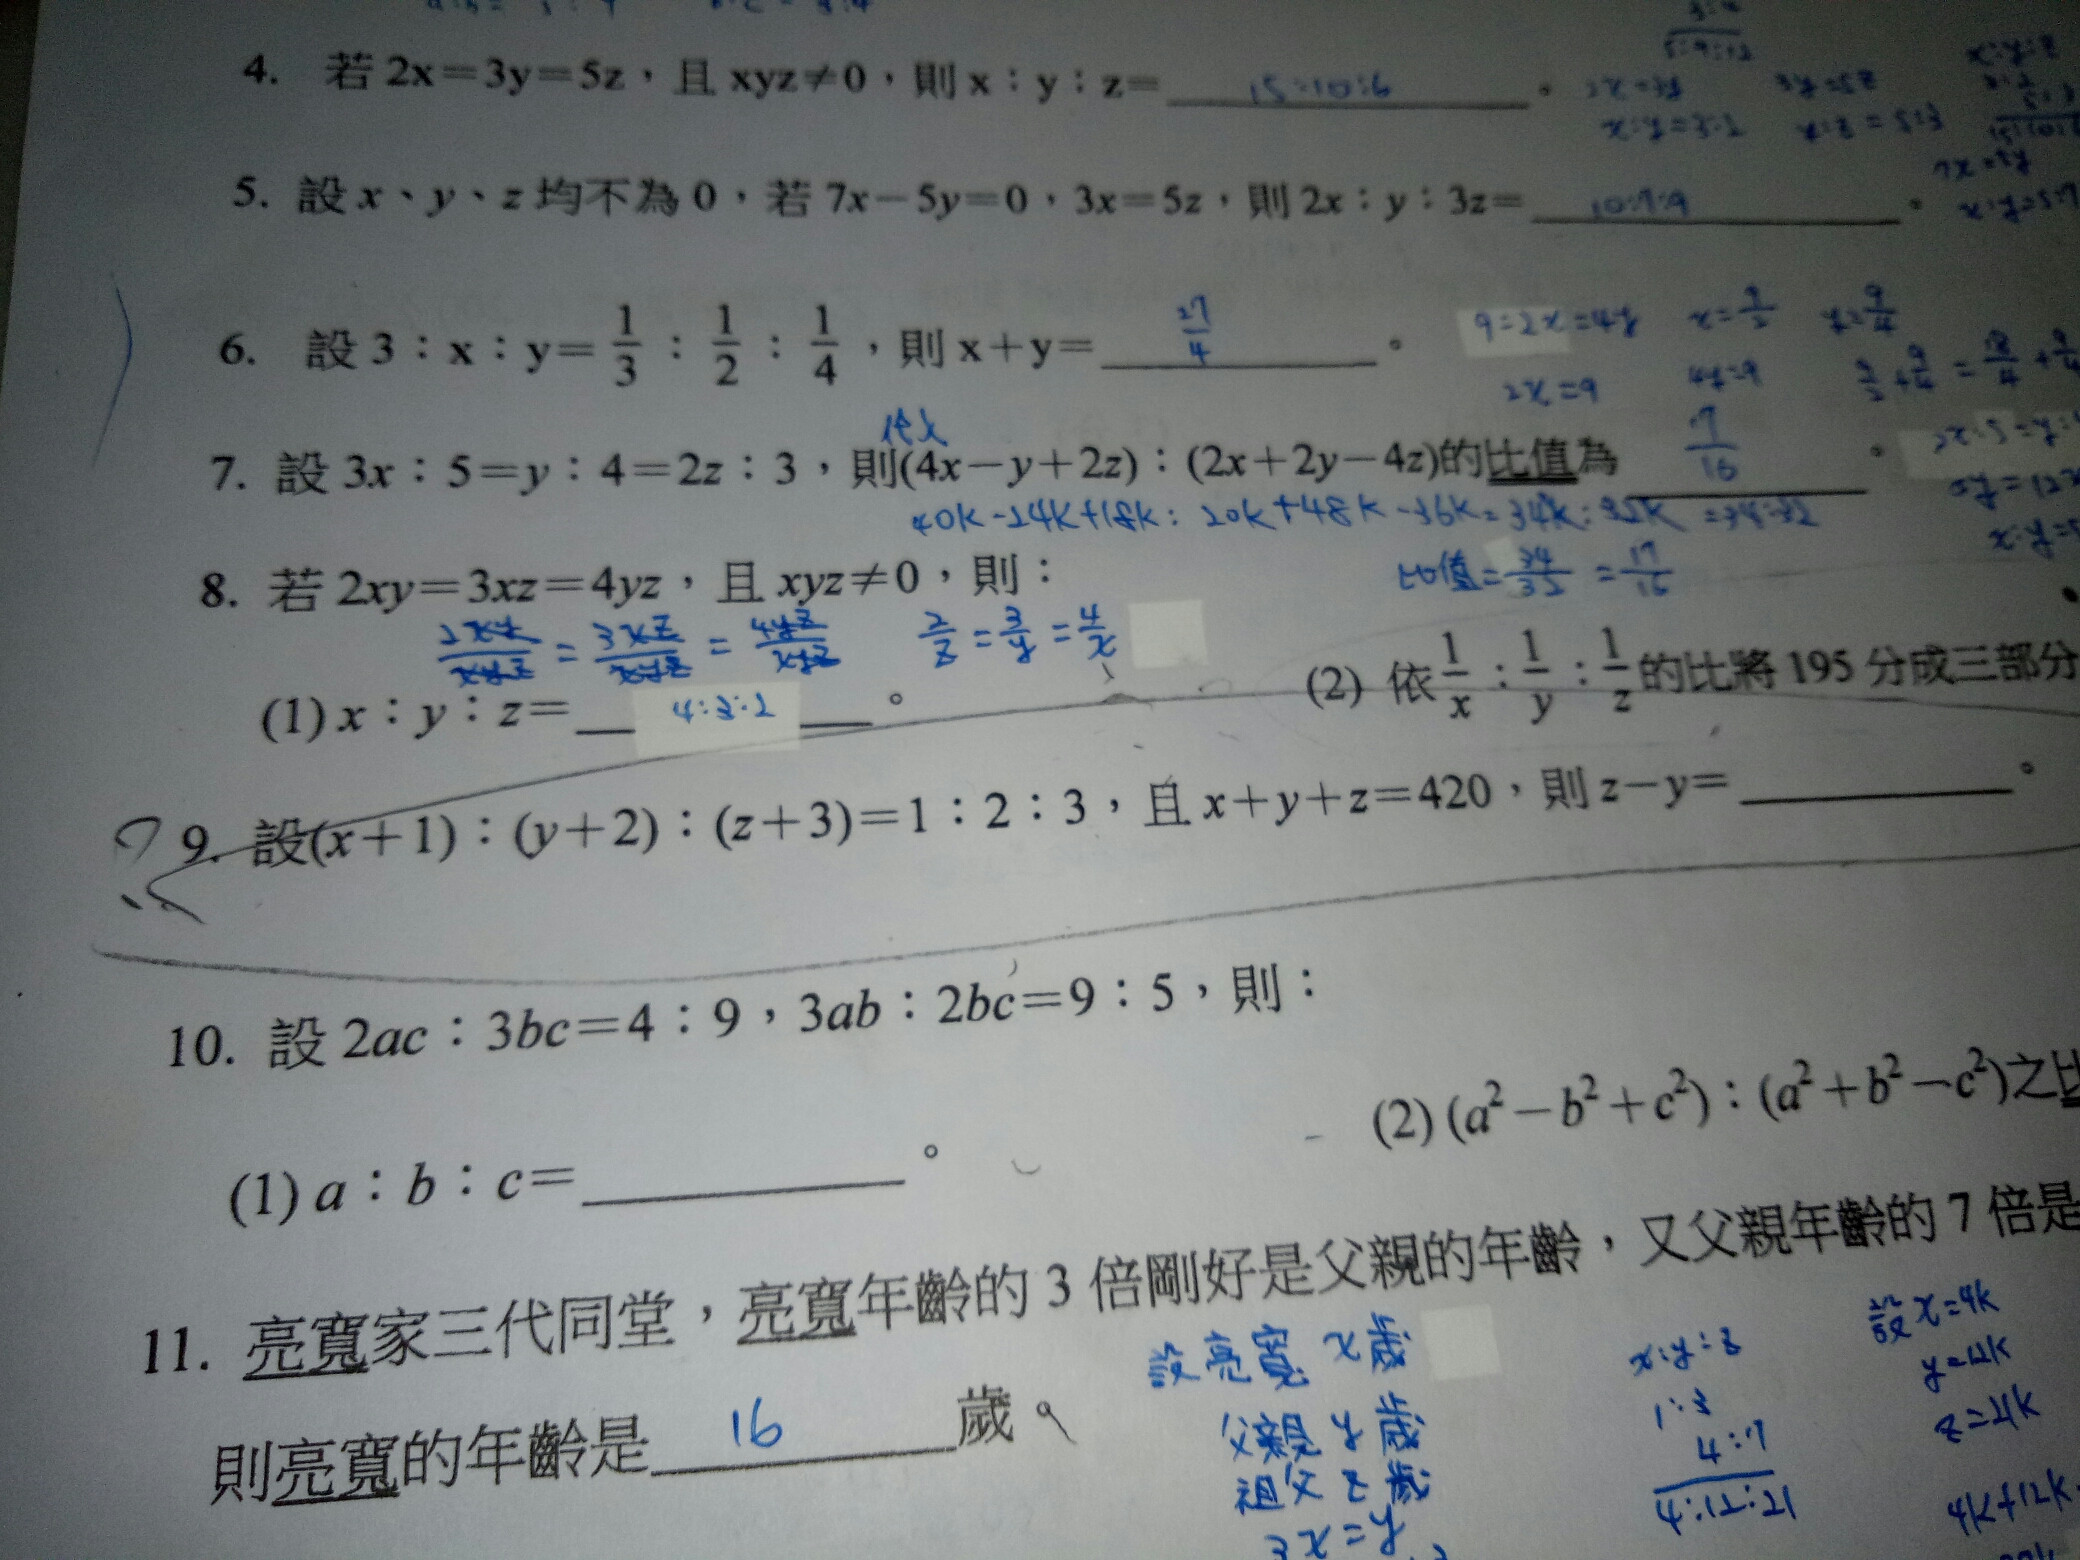 4. 若 2x=3y=5z，且 xyz≠0，則 x：y：z= 15:10:6 。
5. 設 x、y、z 均不為 0，若 7x－5y=0，3x=5z，則 2x：y：3z= 10:7:9 。
6. 設 3：x：y= 1/3 : 1/2 : 1/4，則 x+y= 27/4 。
9=2x=4y x=9/2 y=9/4
2x=9 4y=9
代入
7. 設 3x：5=y：4=2z：3，則(4x－y+2z)：(2x+2y－4z)的比值為 17/16 。
40k-24k+18k: 20k+48k-36k=34k:32k =34:32
比值= =17/16
8. 若 2xy=3xz=4yz，且 xyz≠0，則：
2xy/xyz = 3xz/xyz = 4yz/xyz 2/z = 3/y = 4/x
(1) x：y：z= 4:3:2 。
(2) 依 1/x : 1/y : 1/z 的比將 195 分成三部分
9. 設(x+1)：(y+2)：(z+3)=1：2：3，且 x+y+z=420，則 z－y= 。
10. 設 2ac：3bc=4：9，3ab：2bc=9：5，則：
(1) a：b：c= 。
(2) (a²－b²+c²)：(a²+b²－c²)之比
11. 亮寬家三代同堂，亮寬年齡的 3 倍剛好是父親的年齡，又父親年齡的 7 倍是
則亮寬的年齡是 16 歲。
設亮寬 x歲
父親 y歲
祖父 z歲
3x=y
x:y:z
1:3
4:7
4:12:21
設x=4k
y=12k
z=21k
4k+12k